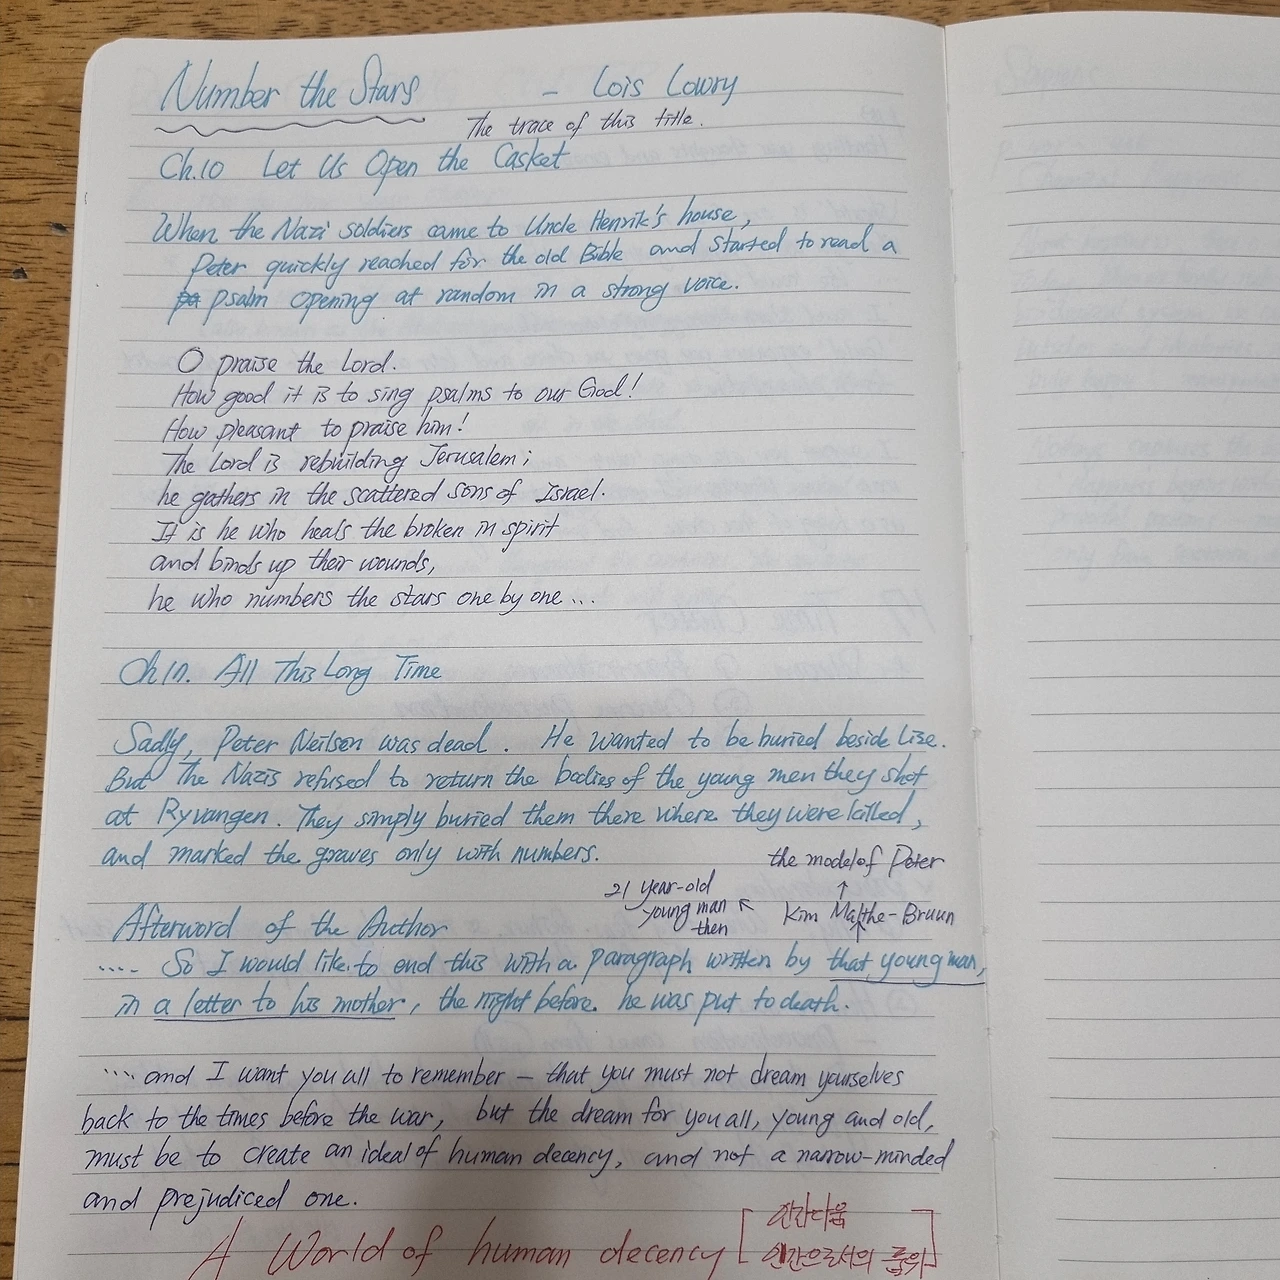 Number the Stars - Lois Lowry
The trace of this title.
Ch.10 Let Us Open the Casket
When the Nazi soldiers came to Uncle Henrik's house,
Peter quickly reached for the old Bible and started to read a
psalm opening at random in a strong voice.
O praise the Lord.
How good it is to sing psalms to our God!
How pleasant to praise him!
The Lord is rebuilding Jerusalem;
he gathers in the scattered sons of Israel.
It is he who heals the broken in spirit
and binds up their wounds,
he who numbers the stars one by one...
Ch 17. All This Long Time
Sadly, Peter Neilsen was dead. He wanted to be buried beside Lise.
But the Nazis refused to return the bodies of the young men they shot
at Ryvangen. They simply buried them there where they were killed,
and marked the graves only with numbers.
the model of Peter
↑
21 year-old
young man ↖ Kim Malthe-Bruun
then ↑
Afterword of the Author
.... So I would like to end this with a paragraph written by that young man,
in a letter to his mother, the night before he was put to death.
.... and I want you all to remember - that you must not dream yourselves
back to the times before the war, but the dream for you all, young and old,
must be to create an ideal of human decency, and not a narrow-minded
and prejudiced one.
A World of human decency [인간다움
인간으로서의 품위]